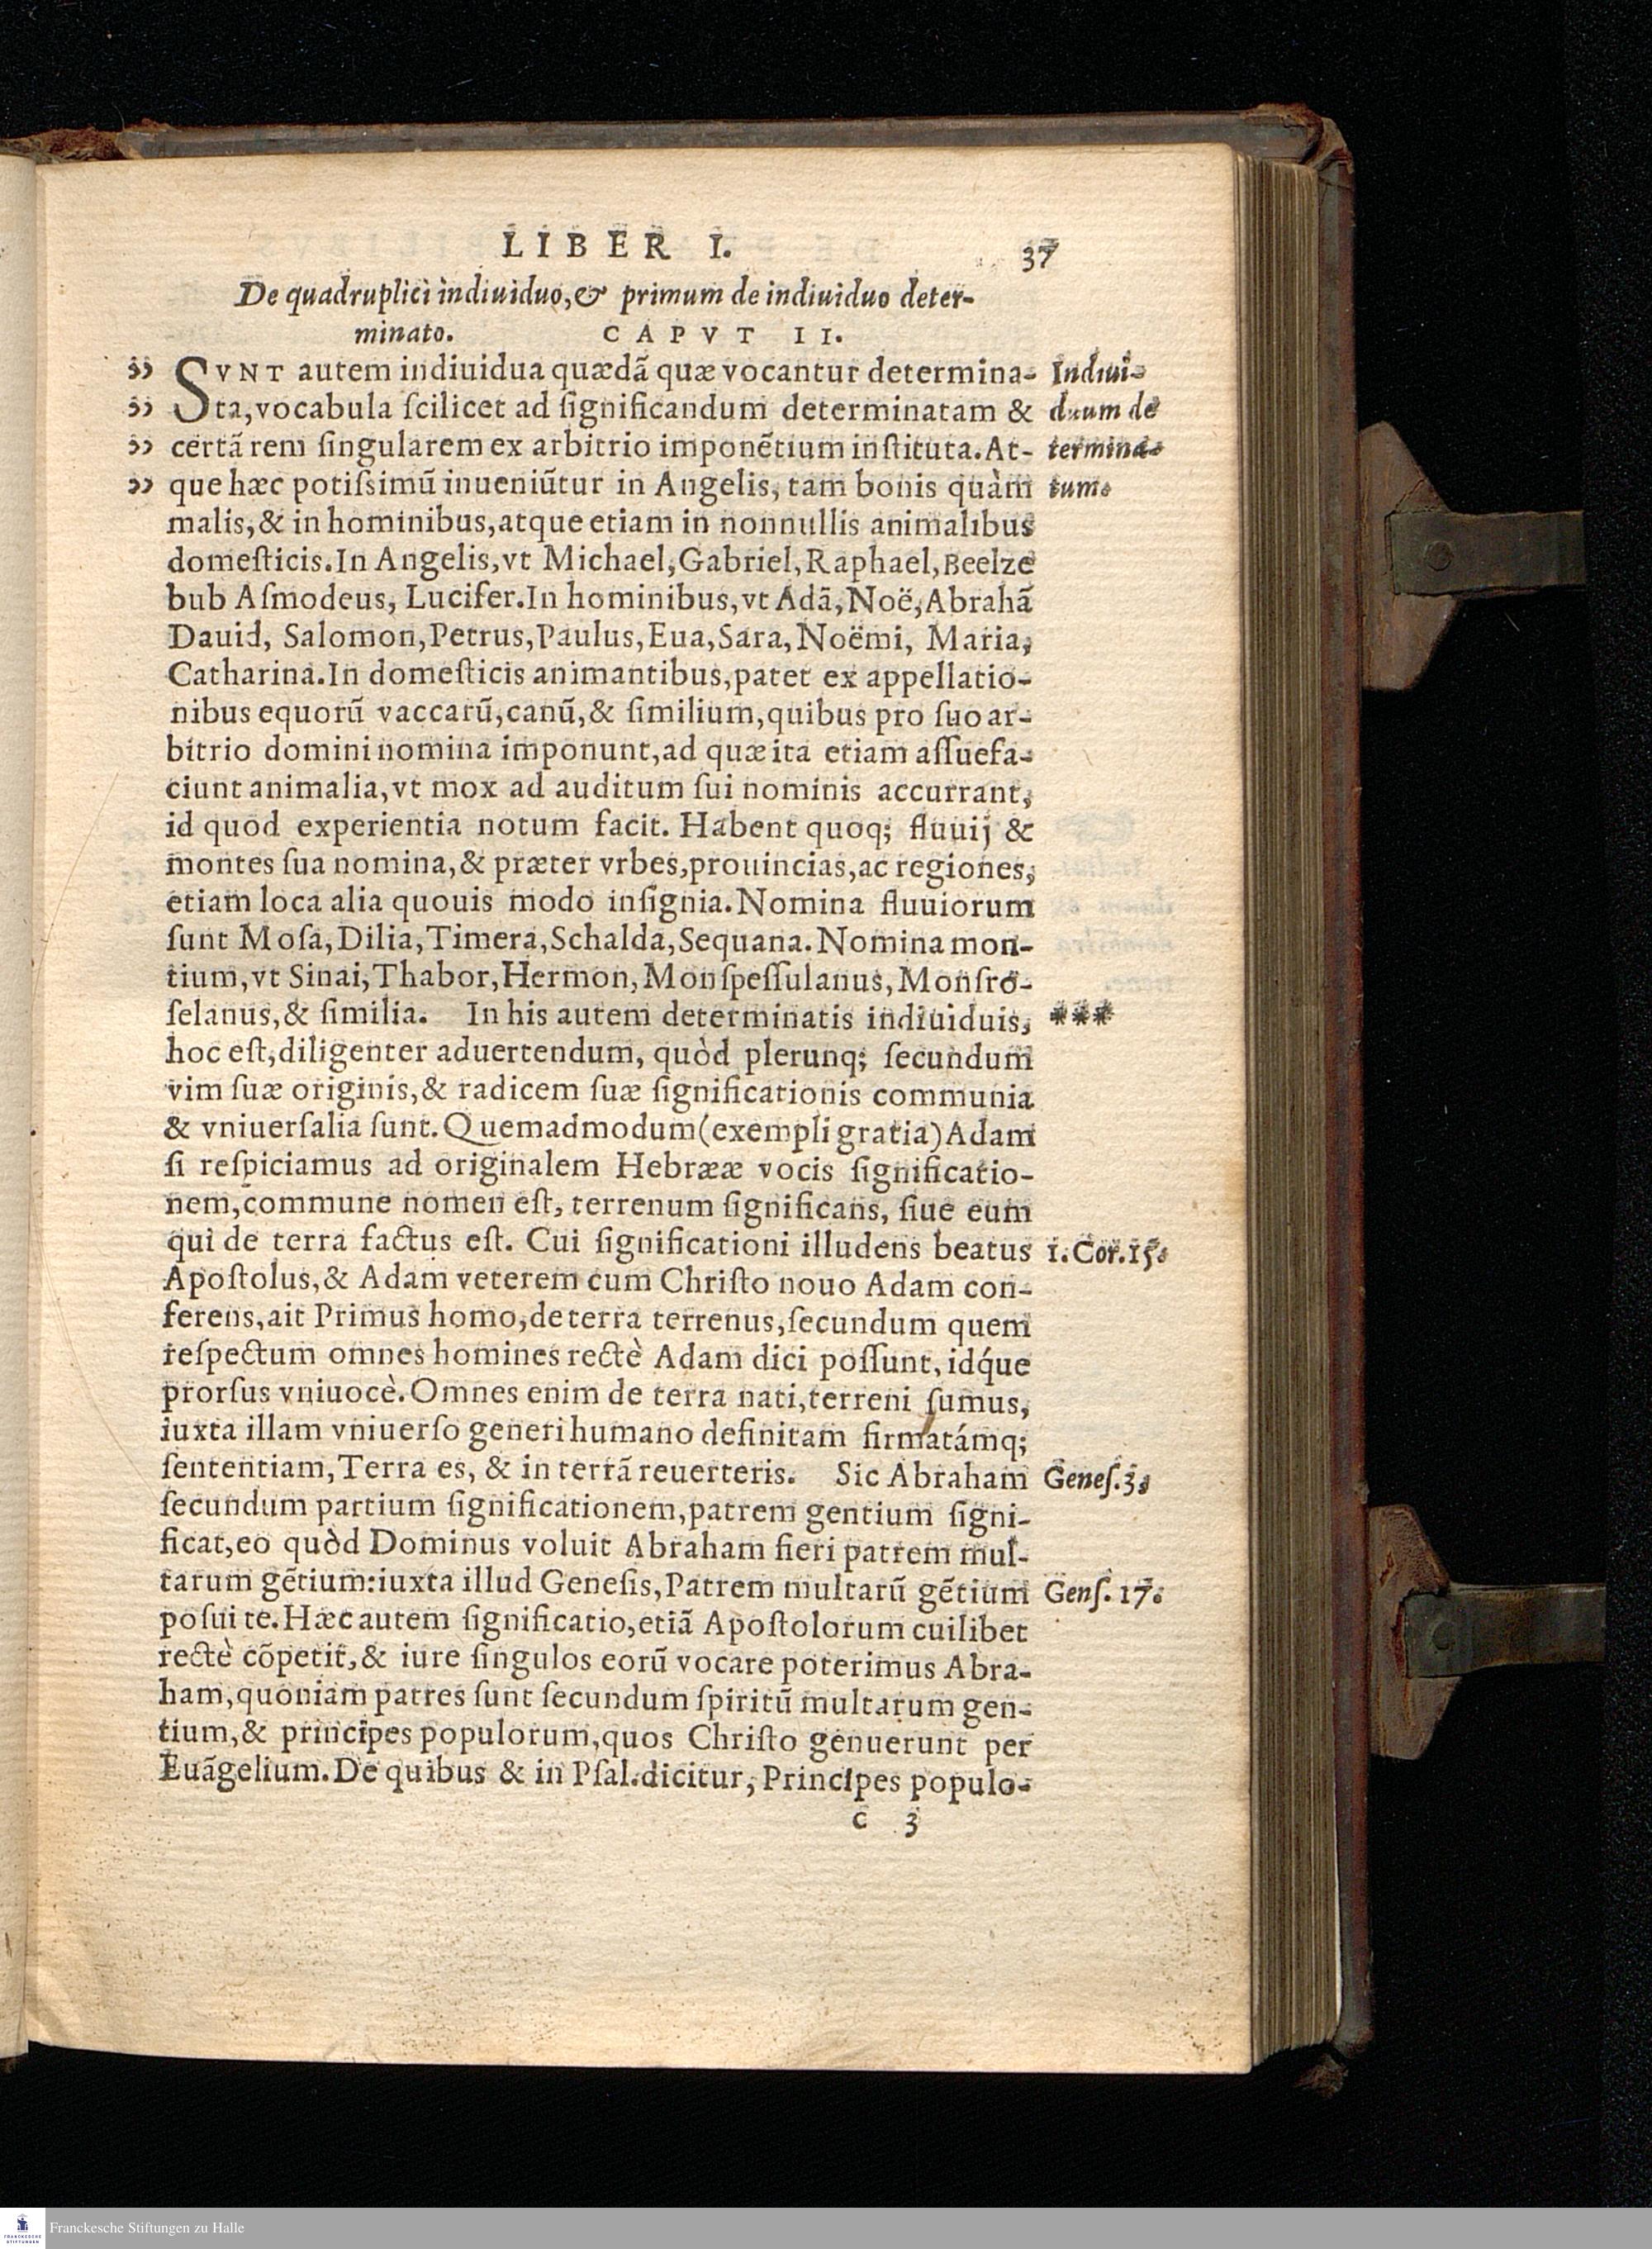 LIBER I. 37
De quadruplici indiuiduo, & primum de indiuiduo deter-
minato. CAPVT II.
SVNT autem indiuidua quædã quæ vocantur determina-
ta, vocabula ſcilicet ad ſignificandum determinatam &
certã rem ſingularem ex arbitrio imponẽtium inſtituta. At-
que hæc potiſsimũ inueniũtur in Angelis, tam bonis quàm
malis, & in hominibus, atque etiam in nonnullis animalibus
domeſticis. In Angelis, vt Michael, Gabriel, Raphael, Beelze
bub Aſmodeus, Lucifer. In hominibus, vt Adã, Noë, Abrahã
Dauid, Salomon, Petrus, Paulus, Eua, Sara, Noëmi, Maria,
Catharina. In domeſticis animantibus, patet ex appellatio-
nibus equorũ vaccarũ, canũ, & ſimilium, quibus pro ſuo ar-
bitrio domini nomina imponunt, ad quæ ita etiam aſſuefa-
ciunt animalia, vt mox ad auditum ſui nominis accurrant,
id quod experientia notum facit. Habent quoq; fluuij &
montes ſua nomina, & præter vrbes, prouincias, ac regiones,
etiam loca alia quouis modo inſignia. Nomina fluuiorum
ſunt Moſa, Dilia, Timera, Schalda, Sequana. Nomina mon-
tium, vt Sinai, Thabor, Hermon, Monſpeſſulanus, Monſro-
ſelanus, & ſimilia. In his autem determinatis indiuiduis,
hoc eſt, diligenter aduertendum, quòd plerunq; ſecundum
vim ſuæ originis, & radicem ſuæ ſignificationis communia
& vniuerſalia ſunt. Quemadmodum (exempli gratia) Adam
ſi reſpiciamus ad originalem Hebrææ vocis ſignificatio-
nem, commune nomen eſt, terrenum ſignificans, ſiue eum
qui de terra factus eſt. Cui ſignificationi illudens beatus
Apoſtolus, & Adam veterem cum Chriſto nouo Adam con-
ferens, ait Primus homo, de terra terrenus, ſecundum quem
reſpectum omnes homines rectè Adam dici poſſunt, idq́ue
prorſus vniuocè. Omnes enim de terra nati, terreni ſumus,
iuxta illam vniuerſo generi humano definitam firmatámq;
ſententiam, Terra es, & in terrã reuerteris. Sic Abraham
ſecundum partium ſignificationem, patrem gentium ſigni-
ficat, eo quòd Dominus voluit Abraham fieri patrem mul-
tarum gẽtium: iuxta illud Geneſis, Patrem multarũ gẽtium
poſui te. Hæc autem ſignificatio, etiã Apoſtolorum cuilibet
rectè cõpetit, & iure ſingulos eorũ vocare poterimus Abra-
ham, quoniam patres ſunt ſecundum ſpiritũ multarum gen-
tium, & principes populorum, quos Chriſto genuerunt per
Euãgelium. De quibus & in Pſal. dicitur, Principes populo-
C 3
Indiui-
duum de
termina-
tum.
***
1. Cor. 15.
Geneſ. 3.
Genſ. 17.
Franckesche Stiftungen zu Halle
FRANCKESCHE
STIFTUNGEN